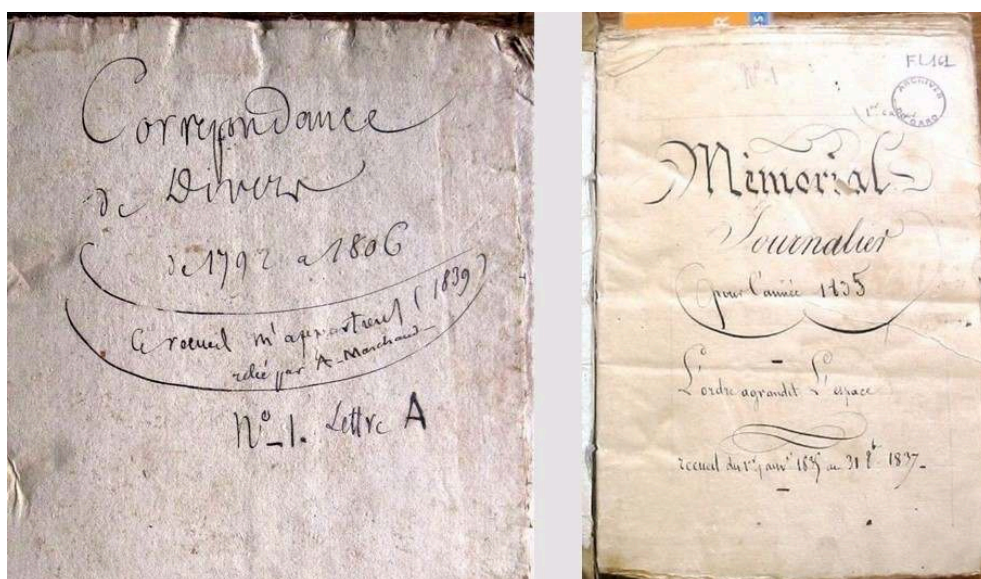 Correspondance
de Divers
de 1792 a 1806
Ce recueil m'appartient (1839
relié par A. Marchand
N° 1. Lettre A
R
SES
N° 1
FL161
ARCHIVES
DU GARD
Mémorial
Journalier
pour l'année 1835
L'ordre agrandit L'espace
recueil du 1er janvr 1835 au 31 8bre 1837